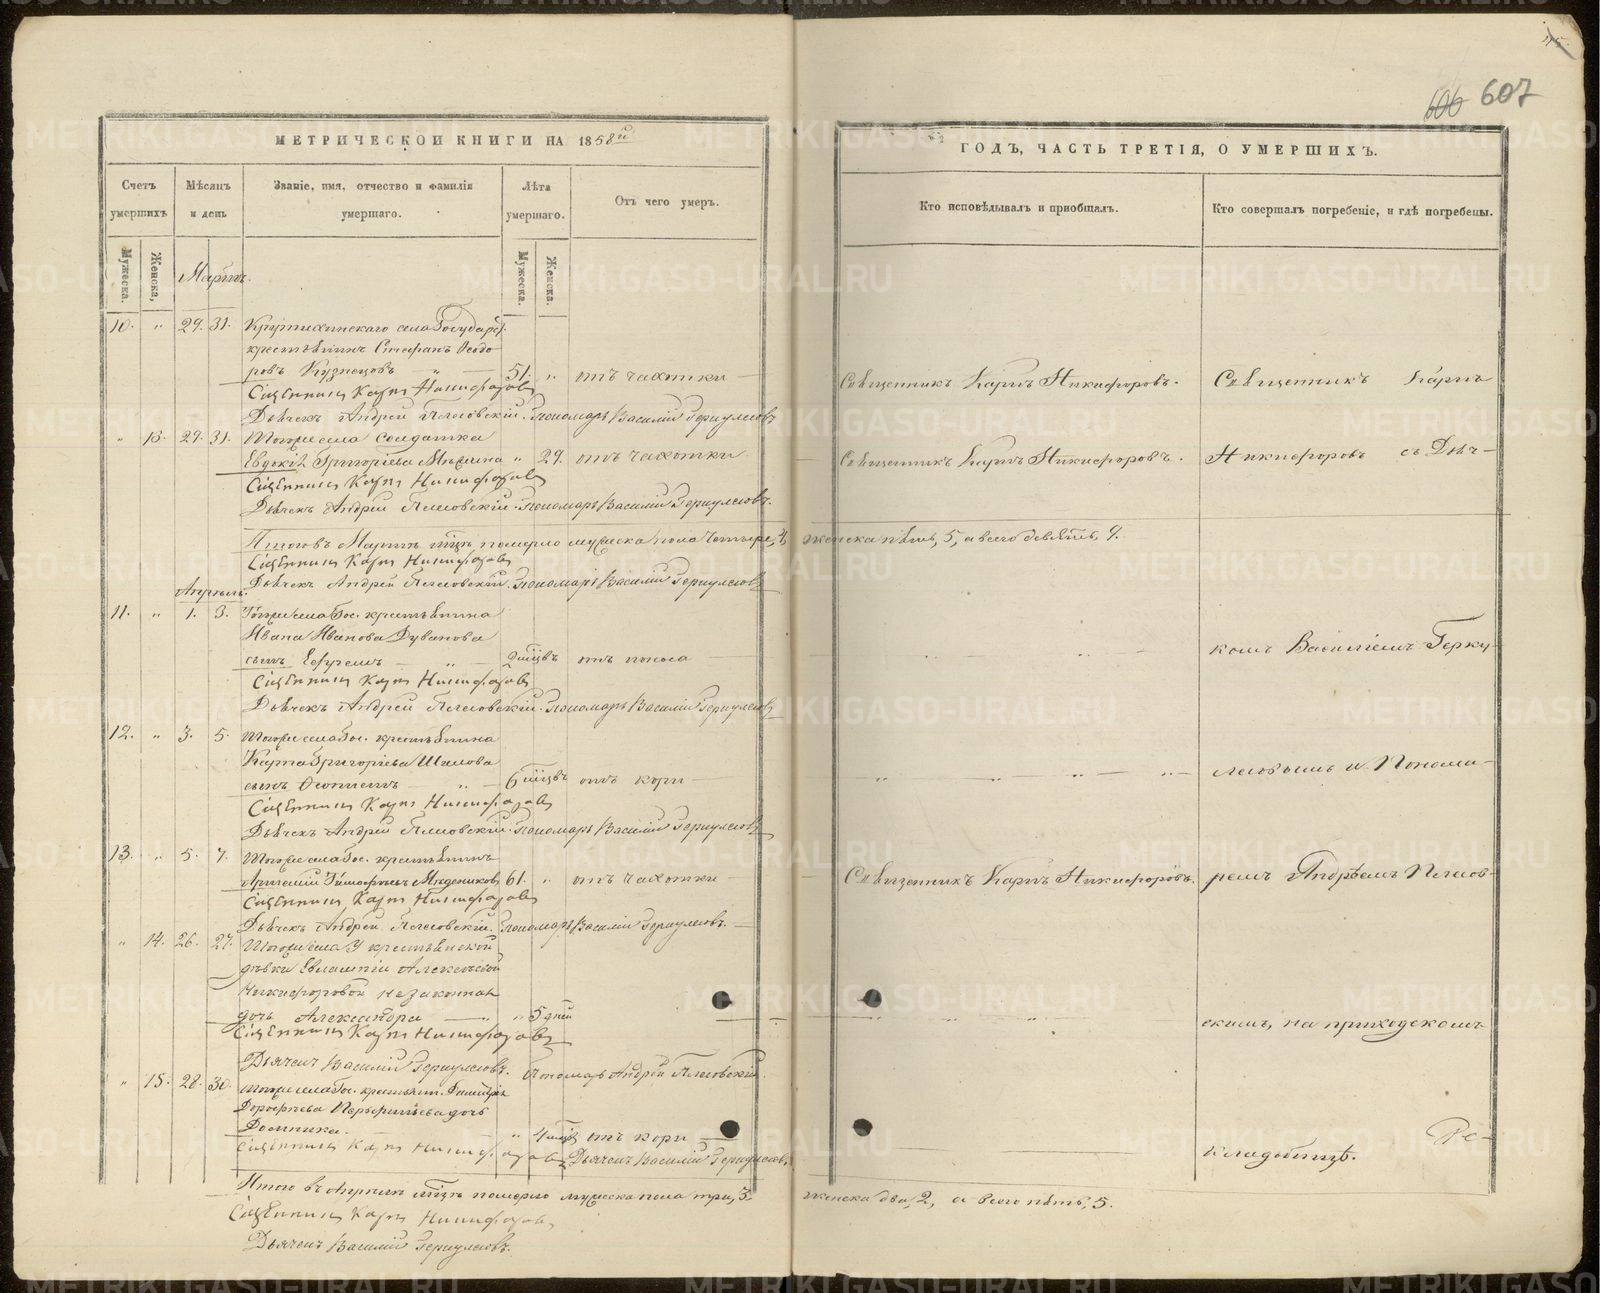 606 607
МЕТРИЧЕСКОЙ КНИГИ НА 1858й
ГОДЪ, ЧАСТЬ ТРЕТІЯ, О УМЕРШИХЪ.
Счетъ умершихъ
Мѣсяцъ и день
Званіе, имя, отчество и фамилія умершаго.
Лѣта умершаго.
Отъ чего умеръ.
Кто исповѣдывалъ и пріобщалъ.
Кто совершалъ погребеніе, и гдѣ погребены.
Мужеска.
Женска,
Мужеска.
Женска.
Мартъ.
10. " 29. 31. Крутихинскаго села Государ.
крестьянинъ Стефанъ Ѳеодо-
ровъ Кузнецовъ 51. " отъ чахотки Священникъ Карпъ Никифоровъ. Священникъ Карпъ
Священникъ Карпъ Никифоровъ
Дьячекъ Андрей Пономарь Василій Геркулесовъ
" 13. 29. 31. Тогоже села солдатка
Евдокія Григоріева " 29. отъ чахотки Священникъ Карпъ Никифоровъ. Никифоровъ съ Дьяч-
Священникъ Карпъ Никифоровъ
Дьячекъ Андрей Пономарь Василій Геркулесовъ.
Итого въ Мартѣ мѣсяцѣ померло мужеска пола четыре, 4, женска пять, 5, а всего девять, 9.
Священникъ Карпъ Никифоровъ
Дьячекъ Андрей Пономарь Василій Геркулесовъ
Апрѣль.
11. " 1. 3. Тогоже села Гос. крестьянина
Ивана Иванова Дуванова
сынъ Ефремъ " отъ поноса комъ Василіемъ Герку-
Священникъ Карпъ Никифоровъ
Дьячекъ Андрей Пономарь Василій Геркулесовъ
12. " 3. 5. Тогоже села Гос. крестьянина
Карпа Григоріева Шилова
сынъ 6 отъ кори лесовымъ и Понома-
Священникъ Карпъ Никифоровъ
Дьячекъ Андрей Пономарь Василій Геркулесовъ
13. " 5. 7. Тогоже села Гос. крестьянинъ
Артемій Тимофеевъ 61. " отъ чахотки Священникъ Карпъ Никифоровъ. ремъ Андреемъ
Священникъ Карпъ Никифоровъ
Дьячекъ Андрей Пономарь Василій Геркулесовъ.
" 14. 26. 27. Тогоже села У крестьянской
дѣвки Евлампіи Алексѣевой
Никифоровой незаконная
дочь Александра " 5 дней скимъ, на приходскомъ
Священникъ Карпъ Никифоровъ
Дьячекъ Василій Геркулесовъ. Пономарь Андрей
" 15. 28. 30. Тогоже села Гос. крестьянина
Дорофѣева дочь
Домника. " 4 отъ кори кладбищѣ.
Священникъ Карпъ Никифоровъ Дьячекъ Василій Геркулесовъ
Итого въ Апрѣлѣ мѣсяцѣ померло мужеска пола три, 3. женска два, 2, а всего пять, 5.
Священникъ Карпъ Никифоровъ
Дьячекъ Василій Геркулесовъ.
METRIKI.GASO-URAL.RU